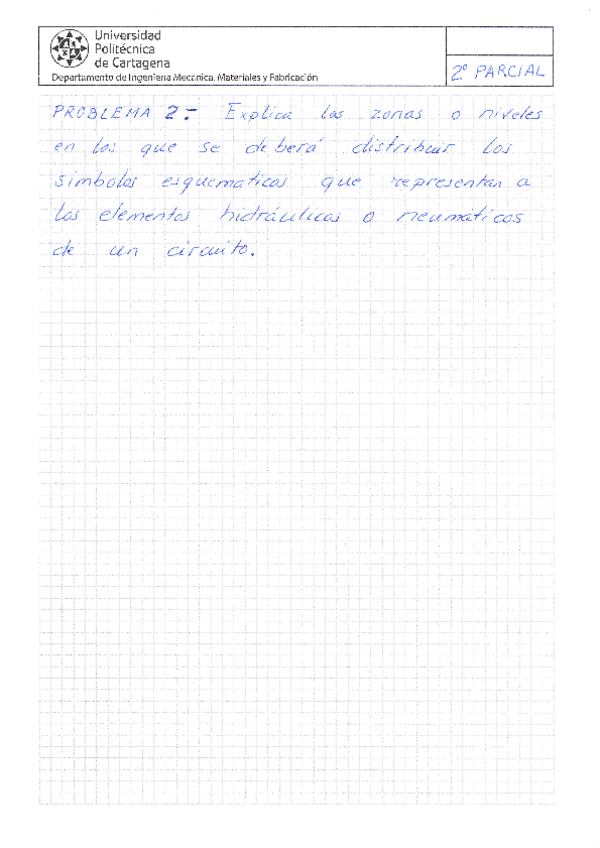 Universidad
Politécnica
de Cartagena
Departamento de Ingeniería Mecánica, Materiales y Fabricación
2º PARCIAL
PROBLEMA 2.- Explica las zonas o niveles
en los que se deberá distribuir los
símbolos esquemáticos que representan a
los elementos hidráulicos o neumáticos
de un circuito.